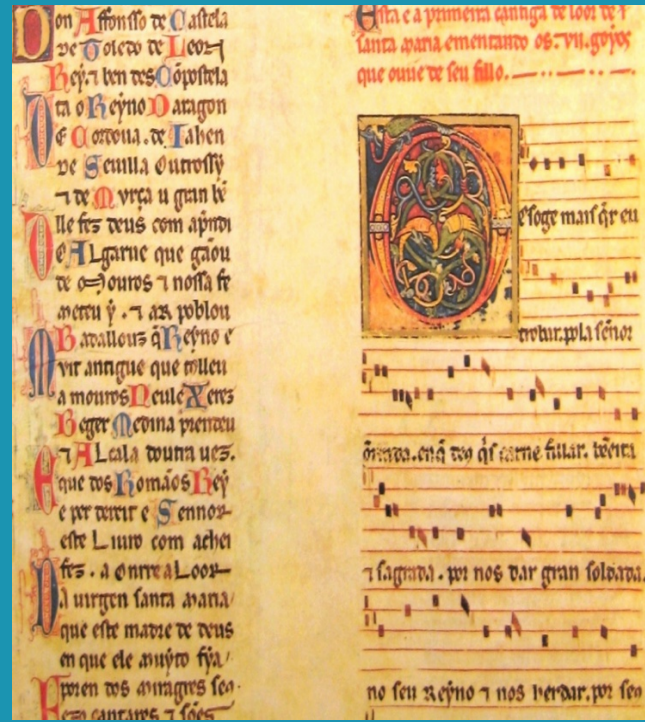 Don Affonso de Castela
de Toledo de Leon
Rey. ⁊ ben des Cõpostela
ta o Reyno Daragon
De Cordoua. de Iahen
de Seuilla Outrossy
⁊ de Murça u gran bẽ
lle fez deus com aprndi
Do Algarue que gãou
de Mouros ⁊ nossa fe
meteu y. ⁊ ar poblou
Badallouz q̃ Reyno e
Muit antigue que tolleu
a mouros Neule Xerez
Beger Medina prendeu
⁊ Alcala doutra uez.
Que dos Romãos Rey
e per dereit e Sennor
este Liuro com achei
fez. a Onrr e a Loor
Da uirgen santa maria
que este madre de deus
en que ele muyto fya
Poren dos miragres seo
Fezo cantares ⁊ sões
Esta e a primeira cantiga de loor de
santa maria ementando os. vii. goyos
que ouue de seu fillo.
Des oge mais q̃r eu
trobar. pola sennor
onrrada. en q̃ deq q̃s carne fillar. bẽeita
⁊ sagrada. por nos dar gran soldada.
no seu Reyno ⁊ nos herdar. por seo